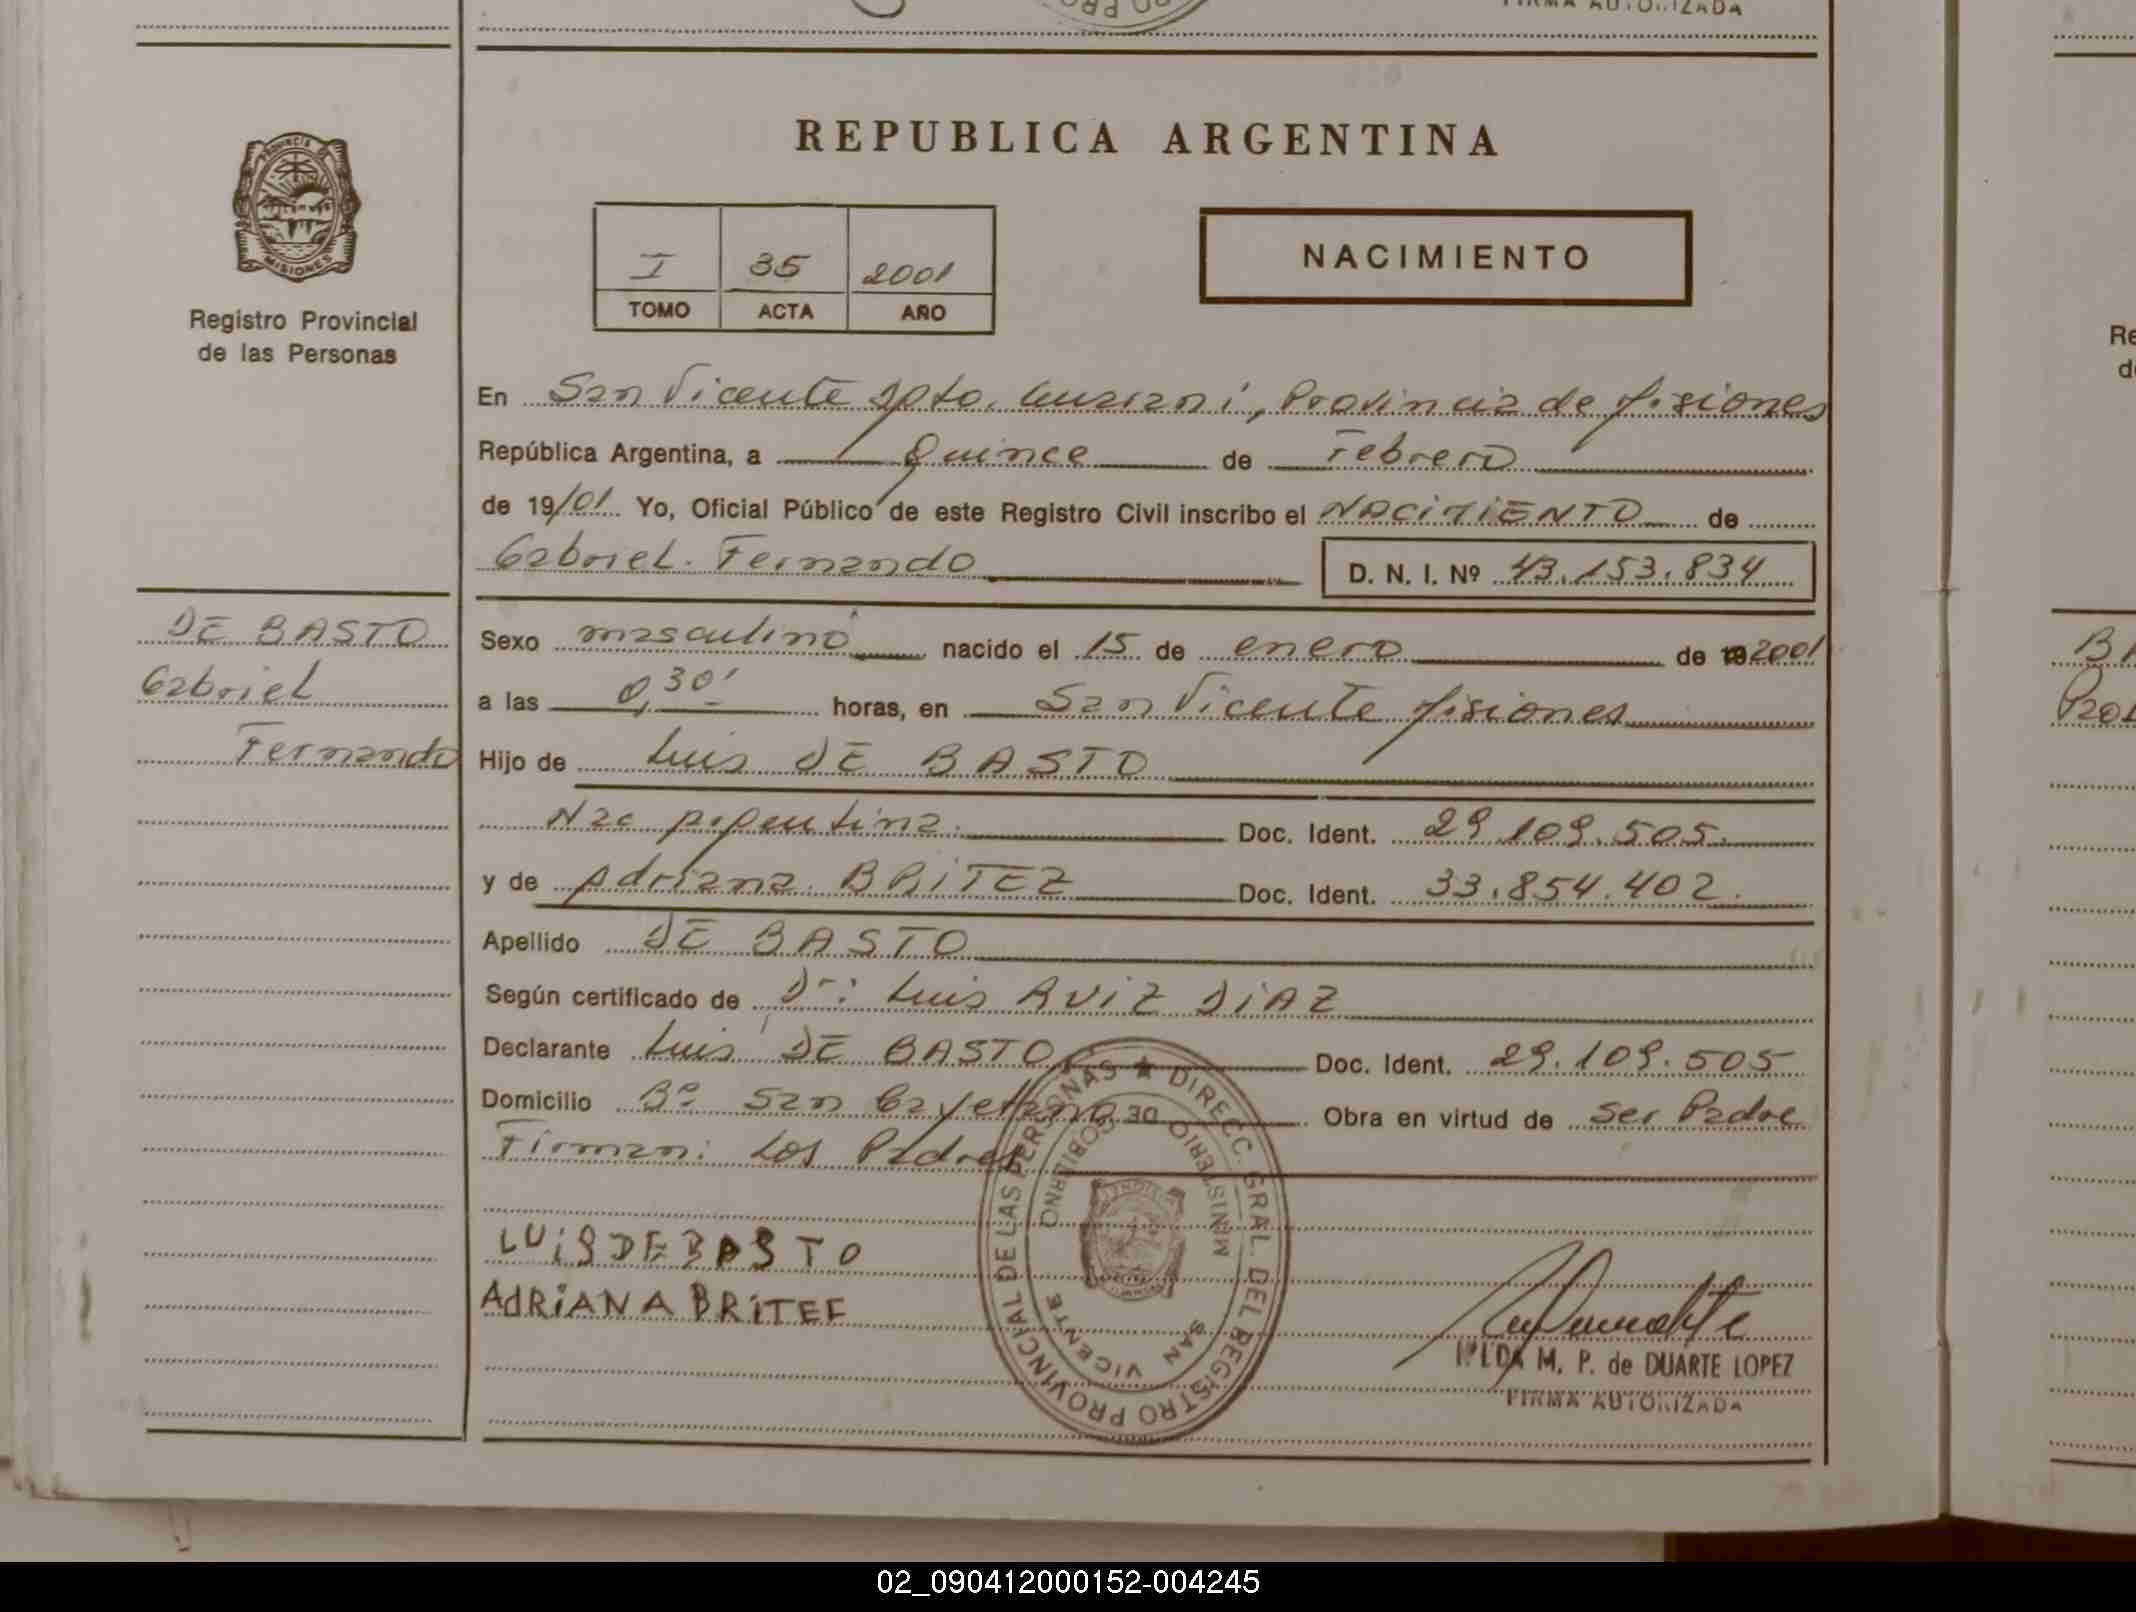 FIRMA AUTORIZADA
REPUBLICA ARGENTINA
PROVINCIA DE
MISIONES
Registro Provincial
de las Personas
I 35 2001
TOMO ACTA AÑO
NACIMIENTO
En San Vicente Dpto. Guaraní, Provincia de Misiones
República Argentina, a Quince de Febrero
de 19/01 Yo, Oficial Público de este Registro Civil inscribo el NACIMIENTO de
Gabriel Fernando D. N. I. Nº 43.153.834
DE BASTO
Gabriel
Fernando
Sexo masculino nacido el 15 de enero de 2001
a las 0,30' horas, en San Vicente Misiones
Hijo de Luis DE BASTO
Nac Argentina. Doc. Ident. 29.109.505.
y de Adriana BRITEZ Doc. Ident. 33.854.402.
Apellido DE BASTO
Según certificado de Dr: Luis RUIZ DIAZ
Declarante Luis DE BASTO Doc. Ident. 29.109.505
Domicilio Bº San Cayetano Obra en virtud de ser Padre
Firman: Los Padres
LUIS DE BASTO
ADRIANA BRITEF
DIRECC. GRAL. DEL REGISTRO PROVINCIAL DE LAS PERSONAS
MINISTERIO DE GOBIERNO
SAN VICENTE
M. P. de DUARTE LOPEZ
FIRMA AUTORIZADA
02_090412000152-004245